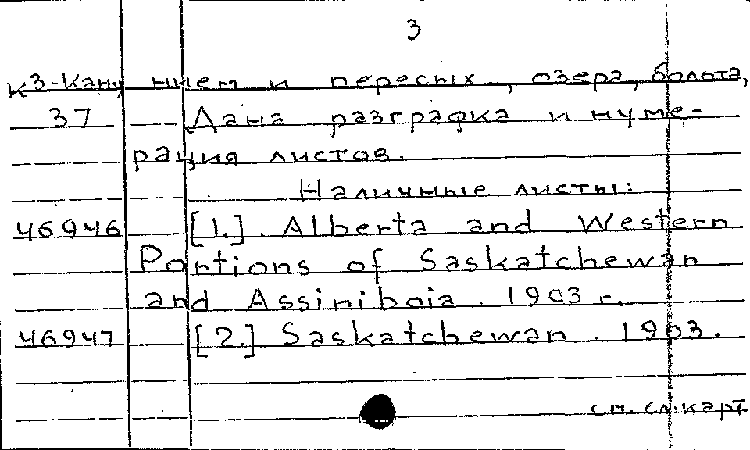 3
к3-Кан нием и пересых, озера, болота,
37 Дана разграфка и нуме-
рация листов.
Наличные листы:
46946 [1.] Alberta and Western
Portions of Saskatchewan
and Assiniboia. 1903 г.
46947 [2.] Saskatchewan. 1903.
см. сл. карт